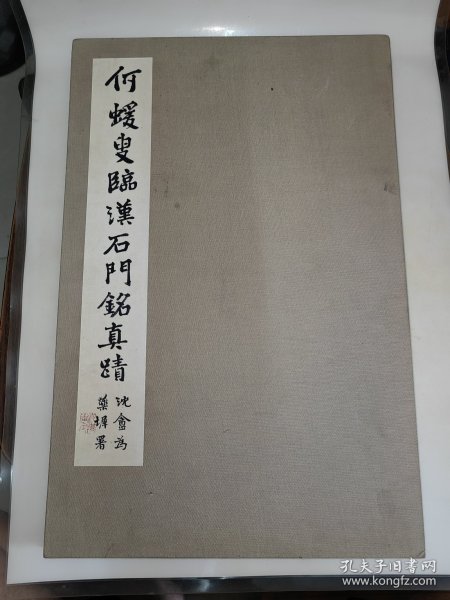 何蝯叟臨漢石門銘真蹟
沈盦為
藥墀署
孔夫子旧书网
www.kongfz.com